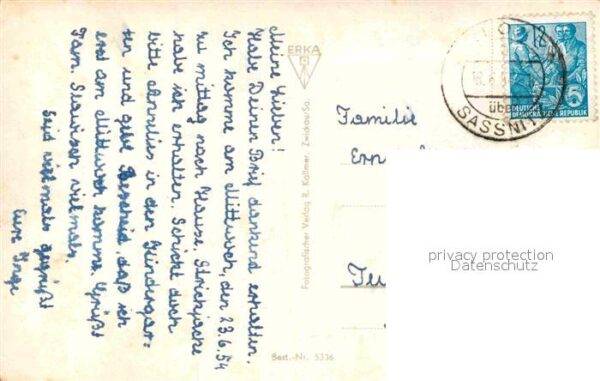 Meine Lieben!
Habe Deinen Brief dankend erhalten.
Ich komme am Mittwoch, den 23.6.54
zu mittag nach Hause. Strickjacke
habe ich erhalten. Schicke doch
bitte Annelies in den Kindergar=
ten und gebt Bescheid daß ich
erst am Mittwoch komme. Grüßt
Fam. vielmals
Seid vielmals gegrüßt
Eure Inge
ERKA
Fotografischer Verlag R. Kallmer, Zwickau/Sa.
Best.-Nr. 5336
Familie
über
SASSNI
DEUTSCHE
DEMOKRATISCHE REPUBLIK
5
privacy protection
Datenschutz